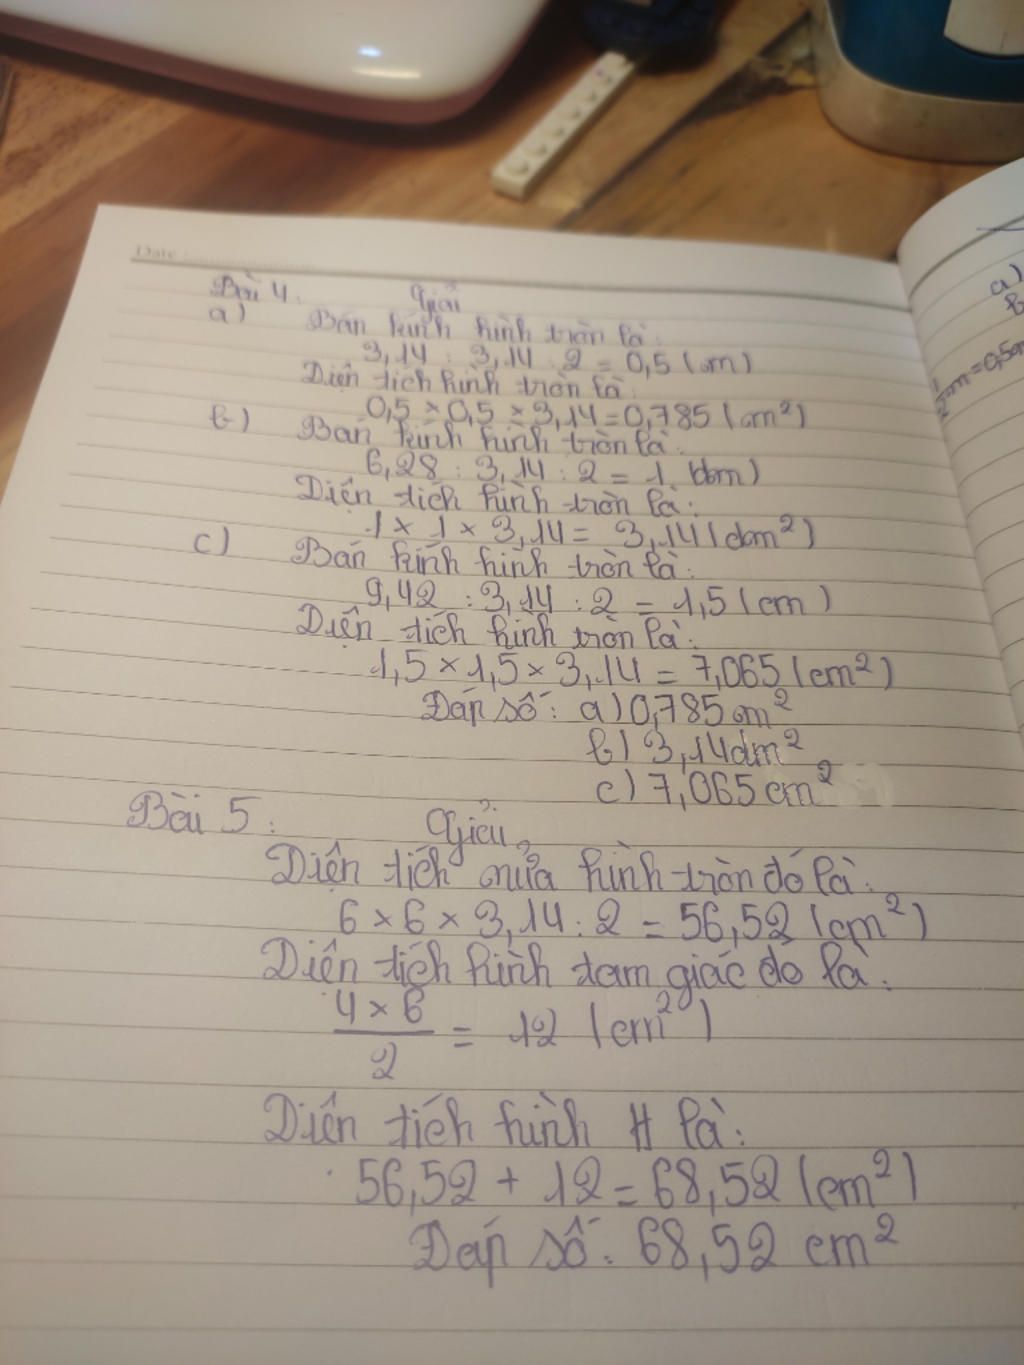 Date
Bài 4: Giải
a) Bán kính hình tròn là:
3,14 : 3,14 : 2 = 0,5 (cm)
Diện tích hình tròn là:
0,5 × 0,5 × 3,14 = 0,785 (cm²)
b) Bán kính hình tròn là:
6,28 : 3,14 : 2 = 1 (dm)
Diện tích hình tròn là:
1 × 1 × 3,14 = 3,14 (dm²)
c) Bán kính hình tròn là:
9,42 : 3,14 : 2 = 1,5 (cm)
Diện tích hình tròn là:
1,5 × 1,5 × 3,14 = 7,065 (cm²)
Đáp số: a) 0,785 cm²
b) 3,14 dm²
c) 7,065 cm²
Bài 5: Giải
Diện tích nửa hình tròn đó là:
6 × 6 × 3,14 : 2 = 56,52 (cm²)
Diện tích hình tam giác đó là:
4 × 6
2
= 12 (cm²)
Diện tích hình H là:
56,52 + 12 = 68,52 (cm²)
Đáp số: 68,52 cm²
a)